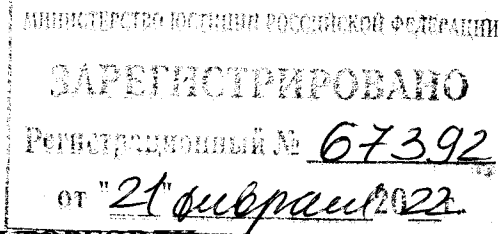 МИНИСТЕРСТВО ЮСТИЦИИ РОССИЙСКОЙ ФЕДЕРАЦИИ
ЗАРЕГИСТРИРОВАНО
Регистрационный № 67392
от "21" февраля 2022 г.